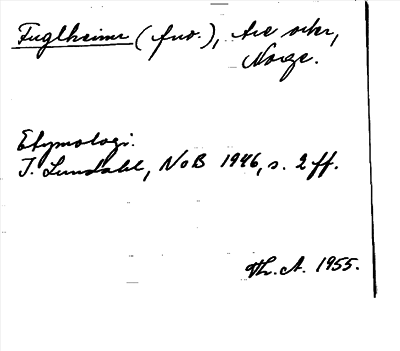 Fuglheimr (fno.), Are socken,
Norge.
Etymologi.
I. Lundahl, NoB 1946, s. 2 ff.
Th. A. 1955.